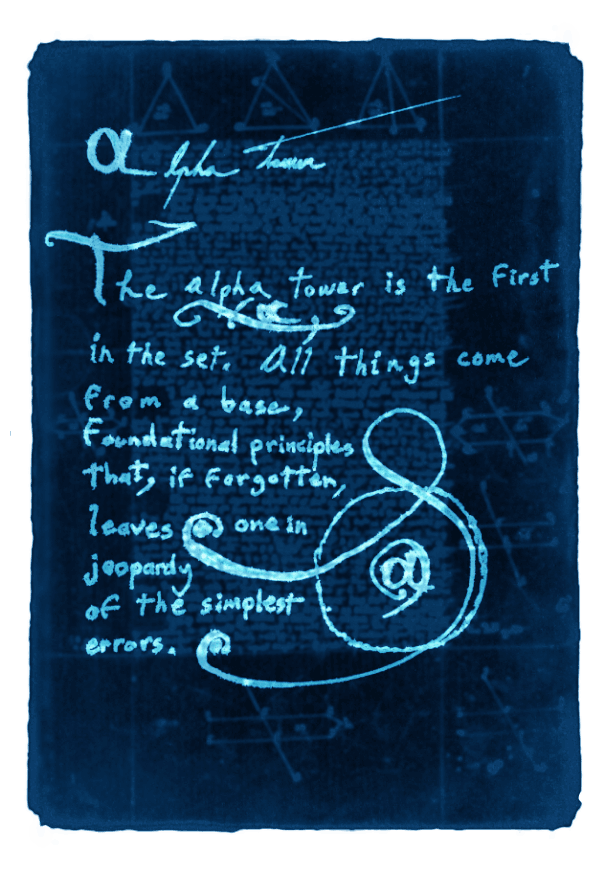 αlpha tower
The alpha tower is the first
in the set. All things come
from a base,
foundational principles
that, if forgotten,
leaves @ one in
jeopardy
of the simplest
errors. @